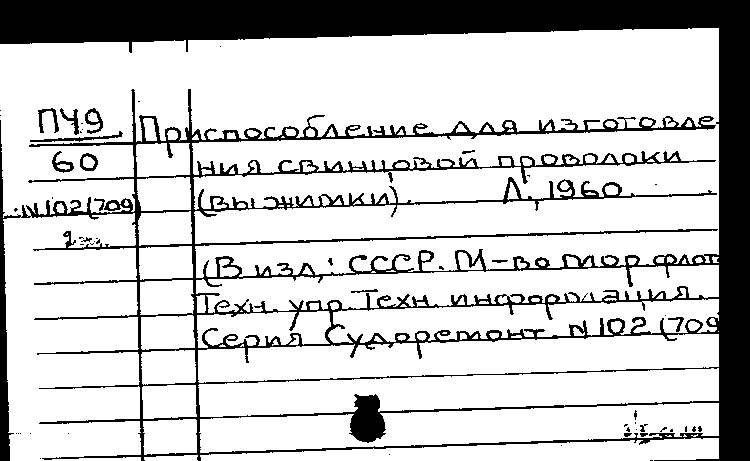 ПЧ9
60
N102(709)
2 экз.
Приспособление для изготовле-
ния свинцовой проволоки
(выжимки). Л., 1960.
(В изд.: СССР. М-во мор. флота
Техн. упр. Техн. информация.
Серия Судоремонт. N 102 (709